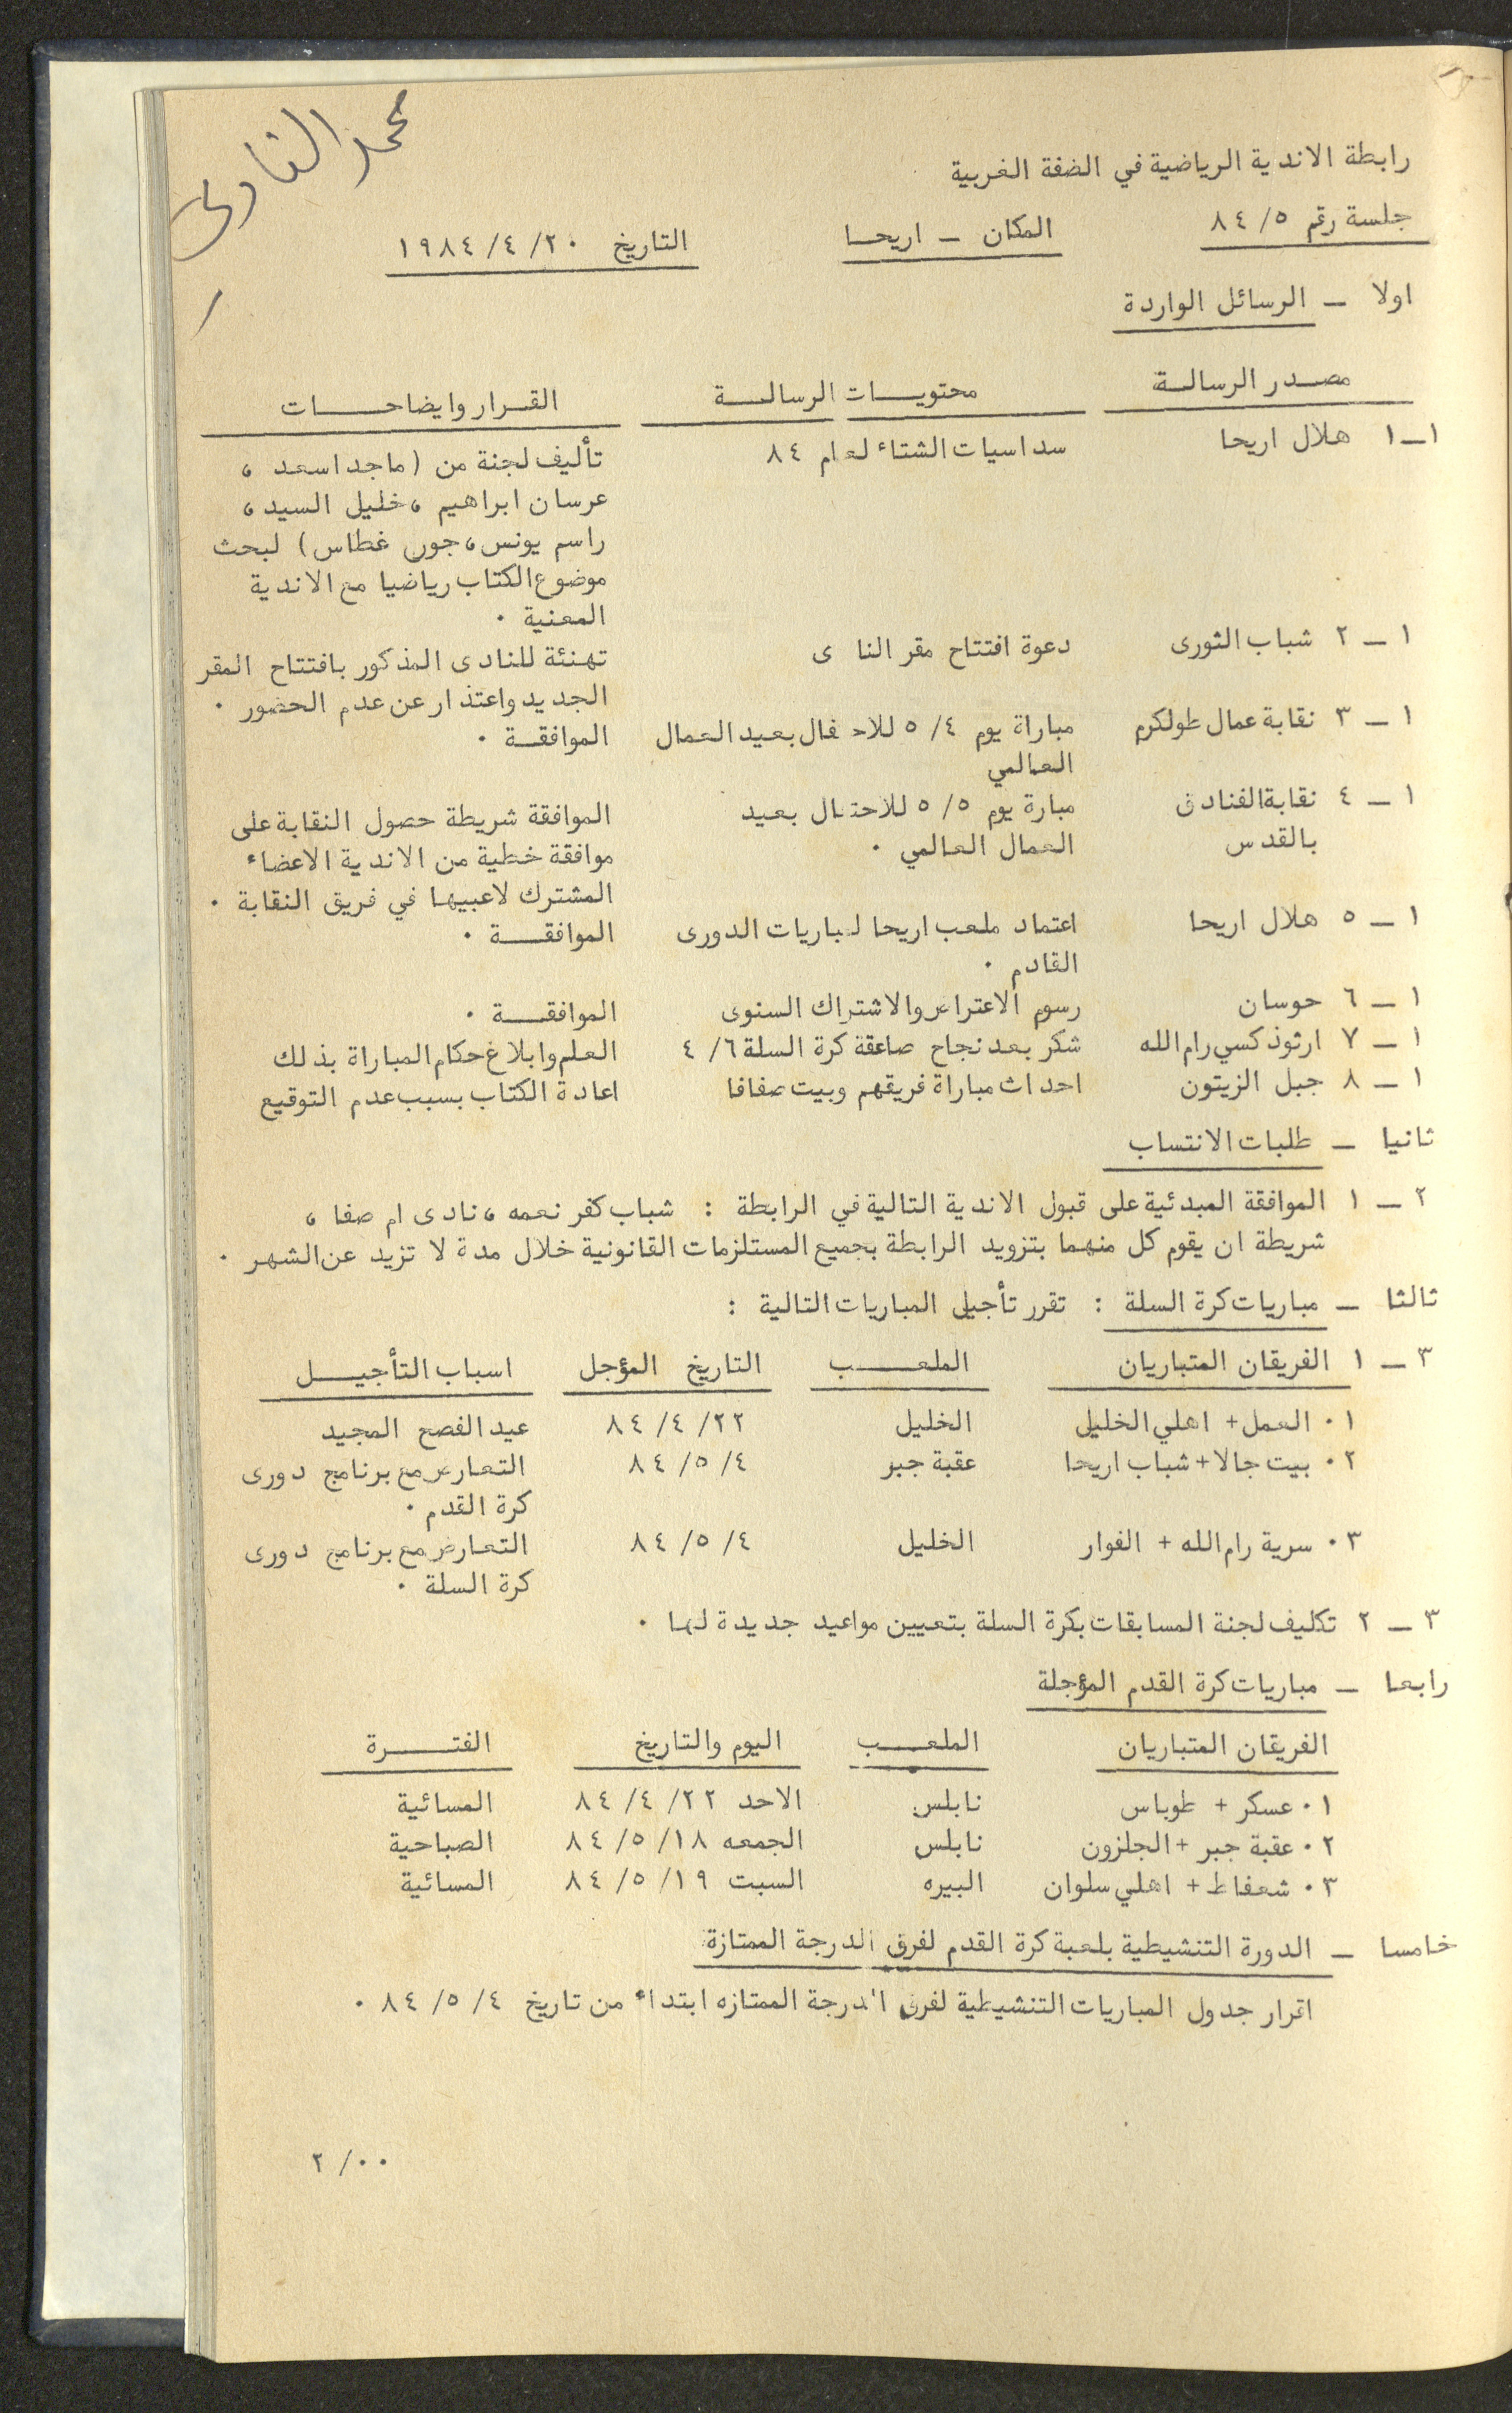 محمد النادى
رابطة الاندية الرياضية في الضفة الغربية
جلسة رقم ٥/ ٨٤ المكان ــ اريحا التاريخ ٢٠/ ٤/ ١٩٨٤
اولا ــ الرسائل الواردة
مصدر الرسالة محتويات الرسالة القرار وايضاحات
١ــ١ هلال اريحا سداسيات الشتاء لعام ٨٤ تأليف لجنة من (ماجد اسعد ،
عرسان ابراهيم ، خليل السيد ،
راسم يونس ، جورج غطاس) لبحث
موضوع الكتاب رياضيا مع الاندية
المعنية ٠
١ ــ ٢ شباب الثورى دعوة افتتاح مقر النا ى تهنئة للنادى المذكور بافتتاح المقر
الجديد واعتذار عن عدم الحضور ٠
١ ــ ٣ نقابة عمال طولكرم مباراة يوم ٤/ ٥ للاحتفال بعيد العمال الموافقة ٠
العالمي
١ ــ ٤ نقابة الفنادق مبارة يوم ٥/ ٥ للاحتفال بعيد الموافقة شريطة حصول النقابة على
بالقدس العمال العالمي ٠ موافقة خطية من الاندية الاعضاء
المشترك لاعبيها في فريق النقابة ٠
١ ــ ٥ هلال اريحا اعتماد ملعب اريحا لمباريات الدورى الموافقة ٠
القادم ٠
١ ــ ٦ حوسان رسوم الاعتراض والاشتراك السنوى الموافقة ٠
١ ــ ٧ ارثوذكسي رام الله شكر بعد نجاح صاعقة كرة السلة ٦/ ٤ العلم وابلاغ حكام المباراة بذلك
١ ــ ٨ جبل الزيتون احداث مباراة فريقهم وبيت صفافا اعادة الكتاب بسبب عدم التوقيع
ثانيا ــ طلبات الانتساب
٢ ــ ١ الموافقة المبدئية على قبول الاندية التالية في الرابطة : شباب كفر نعمه ، نادى ام صفا ،
شريطة ان يقوم كل منهما بتزويد الرابطة بجميع المستلزمات القانونية خلال مدة لا تزيد عن الشهر ٠
ثالثا ــ مباريات كرة السلة : تقرر تأجيل المباريات التالية :
٣ ــ ١ الفريقان المتباريان الملعب التاريخ المؤجل اسباب التأجيل
٠١ العمل + اهلي الخليل الخليل ٢٢/ ٤/ ٨٤ عيد الفصح المجيد
٠٢ بيت جالا + شباب اريحا عقبة جبر ٤/ ٥/ ٨٤ التعارض مع برنامج دورى
كرة القدم ٠
٠٣ سرية رام الله + الفوار الخليل ٤/ ٥/ ٨٤ التعارض مع برنامج دورى
كرة السلة ٠
٣ ــ ٢ تكليف لجنة المسابقات بكرة السلة بتعيين مواعيد جديدة لها ٠
رابعا ــ مباريات كرة القدم المؤجلة
الفريقان المتباريان الملعب اليوم والتاريخ الفترة
٠١ عسكر + طوباس نابلس الاحد ٢٢/ ٤/ ٨٤ المسائية
٠٢ عقبة جبر + الجلزون نابلس الجمعه ١٨/ ٥/ ٨٤ الصباحية
٠٣ شعفاط + اهلي سلوان البيره السبت ١٩/ ٥/ ٨٤ المسائية
خامسا ــ الدورة التنشيطية بلعبة كرة القدم لفرق الدرجة الممتازة
اقرار جدول المباريات التنشيطية لفرق الدرجة الممتازه ابتداء من تاريخ ٤/ ٥/ ٨٤ ٠
٠٠/ ٢